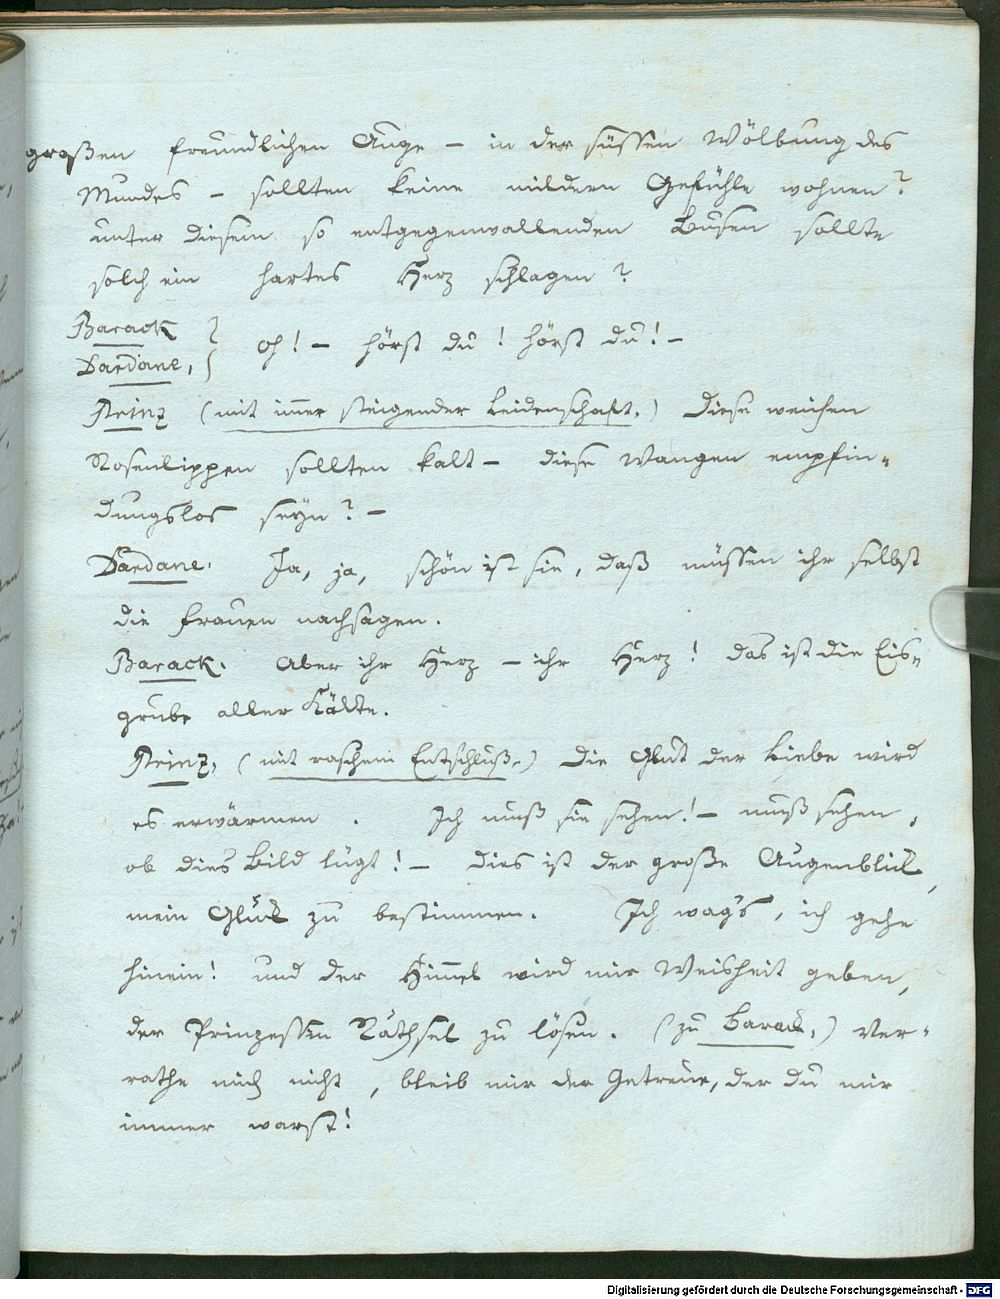 großen freundlichen Auge – in der süssen Wölbung des
Mundes – sollten keine mildern Gefühle wohnen?
unter diesem so entgegenwallenden Busen sollte
solch ein hartes Herz schlagen?
Barack
Dardane, } oh! – hörst du! hörst du! –
Prinz (mit immer steigender Leidenschaft.) Diese weichen
Rosenlippen sollten kalt – diese Wangen empfin-
dungslos seyn? –
Dardane. Ja, ja, schön ist sie, daß müssen ihr selbst
die Frauen nachsagen.
Barack. Aber ihr Herz – ihr Herz! das ist die Eis-
grube aller Kälte.
Prinz, (mit raschem Entschluß.) Die Glut der Liebe wird
es erwärmen. Ich muß sie sehen! – muß sehen,
ob dies Bild lügt! – dies ist der große Augenblick,
mein Glück zu bestimmen. Ich wag's, ich gehe
hinein! und der Himmel wird mir Weisheit geben,
der Prinzessin Räthsel zu lösen. (zu Barack.) Ver-
rathe mich nicht, bleib mir der Getreue, der du mir
immer warst!
Digitalisierung gefördert durch die Deutsche Forschungsgemeinschaft - DFG